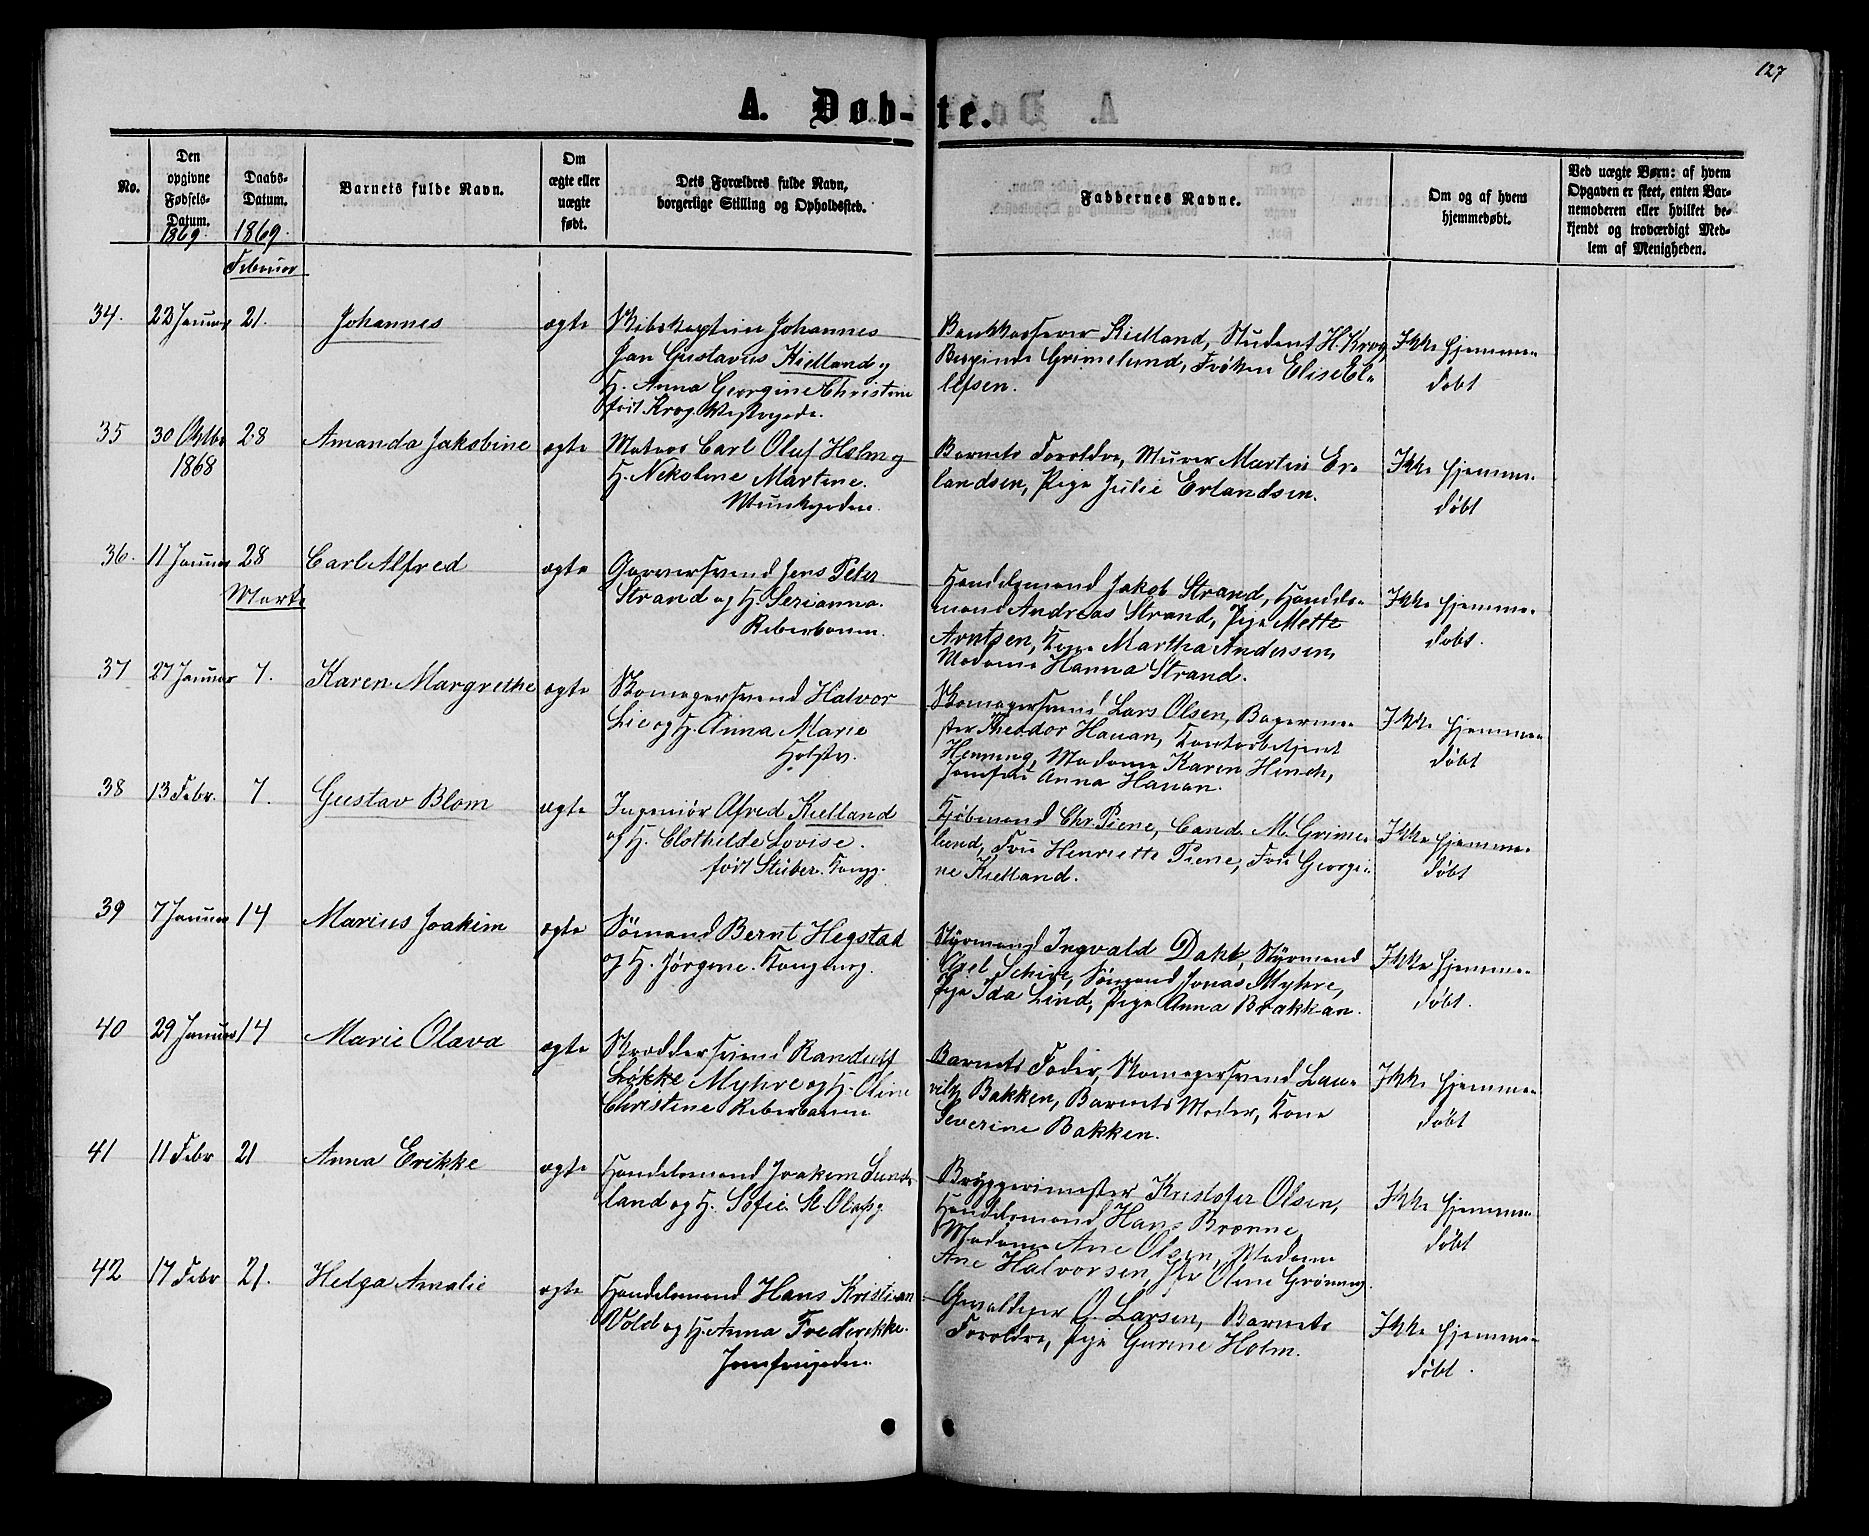 127
A. Døb-te.
No.
Den
opgivne
Fødsels-
Datum.
1869.
Daabs-
Datum.
1869.
Barnets fulde Navn.
Om
ægte eller
uægte
født.
Dets Forældres fulde Navn,
borgerlige Stilling og Opholdssted.
Faddernes Navne.
Om og af hvem
hjemmedøbt.
Ved uægte Børn: af hvem
Opgaven er skeet, enten Bar-
nemoderen eller hvilket be-
kjendt og troværdigt Med-
lem af Menigheden.
Februar
34. 23 Januar 21. Johannes ægte
Skibskaptein Johannes
Jan Gustavus Kielland og
H. Anna Georgine Christine
født Krog.
Bankkasserer Kielland, Student H. Krog
Grimelund, Frøken Elise El-
lefsen.
Ikke hjemme-
døbt
35 30 Oktbr 28 Amanda Jakobine ægte
1868
Matros Carl Oluf Holm og
H. Nikoline Martine.
Munkegaden.
Barnets Forældre, Murer Martin Er-
landsen, Pige Julie Erlandsen.
Ikke hjemme-
døbt
36. 11 Januar 28 Carl Alfred ægte
Garversvend Jens Peter
Strand og H. Serianna.
Reberbanen.
Handelsmand Jakob Strand, Handels-
mand Andreas Strand, Pige Mette
Arntsen, Kone Martha Andersen,
Madame Hanna Strand.
Ikke hjemme-
døbt.
Marts
37 27 Januar 7. Karen Margrethe ægte
Skomagersvend Halvor
Lie og H. Anna Marie
Skomagersvend Lars Olsen, Bagerme-
ster Theodor Hauan, Kontorbetjent
Henning, Madame Karen Hinch,
Jomfru Anna Hauan.
Ikke hjemme-
døbt
38 13 Febr. 7. Gustav Blom ægte
Ingeniør Alfred Kielland
og H. Clothilde Lovise.
født Stüber. Kongg.
Kjøbmand Chr. Piene, Cand. M. Grime-
lund, Fru Henriette Piene, Fru Georgi-
ne Kielland.
Ikke hjemme-
døbt
39 7 Januar 14 Marius Joakim ægte
Sømand Bernt Hegstad
og H. Jørgene.
Styrmand Ingvald Dahl, Styrmand
Axel Schive, Sømand Jonas Myhre,
Pige Ida Lind, Pige Anna Brakkan.
Ikke hjemme-
døbt.
40 29 Januar 14 Marie Olava ægte
Skræddersvend Randulf
Løkke Myhre og H. Oline
Christine Reberbanen
Barnets Fader, Skomagersvend Lau-
ritz Bakken, Barnets Moder, Kone
Severine Bakken.
Ikke hjemme-
døbt
41 11 Febr 21 Anna Erikke ægte
Handelsmand Joakem Sund-
land og H. Sofie. St. Olafsg
Bryggerimester Kristofer Olsen,
Handelsmand Hans Brønne,
Madame Ane Olsen, Madame
Ane Halvorsen, Jfr Oline Grønning.
Ikke hjemme-
døbt
42 17 Febr 21. Helga Amalie ægte
Handelsmand Hans Kristian
Vold og H. Anna Frederikke.
Jomfrugaden.
Gevaldiger O. Larsen, Barnets
Forældre, Pige Gurine Holm.
Ikke hjemme-
døbt.